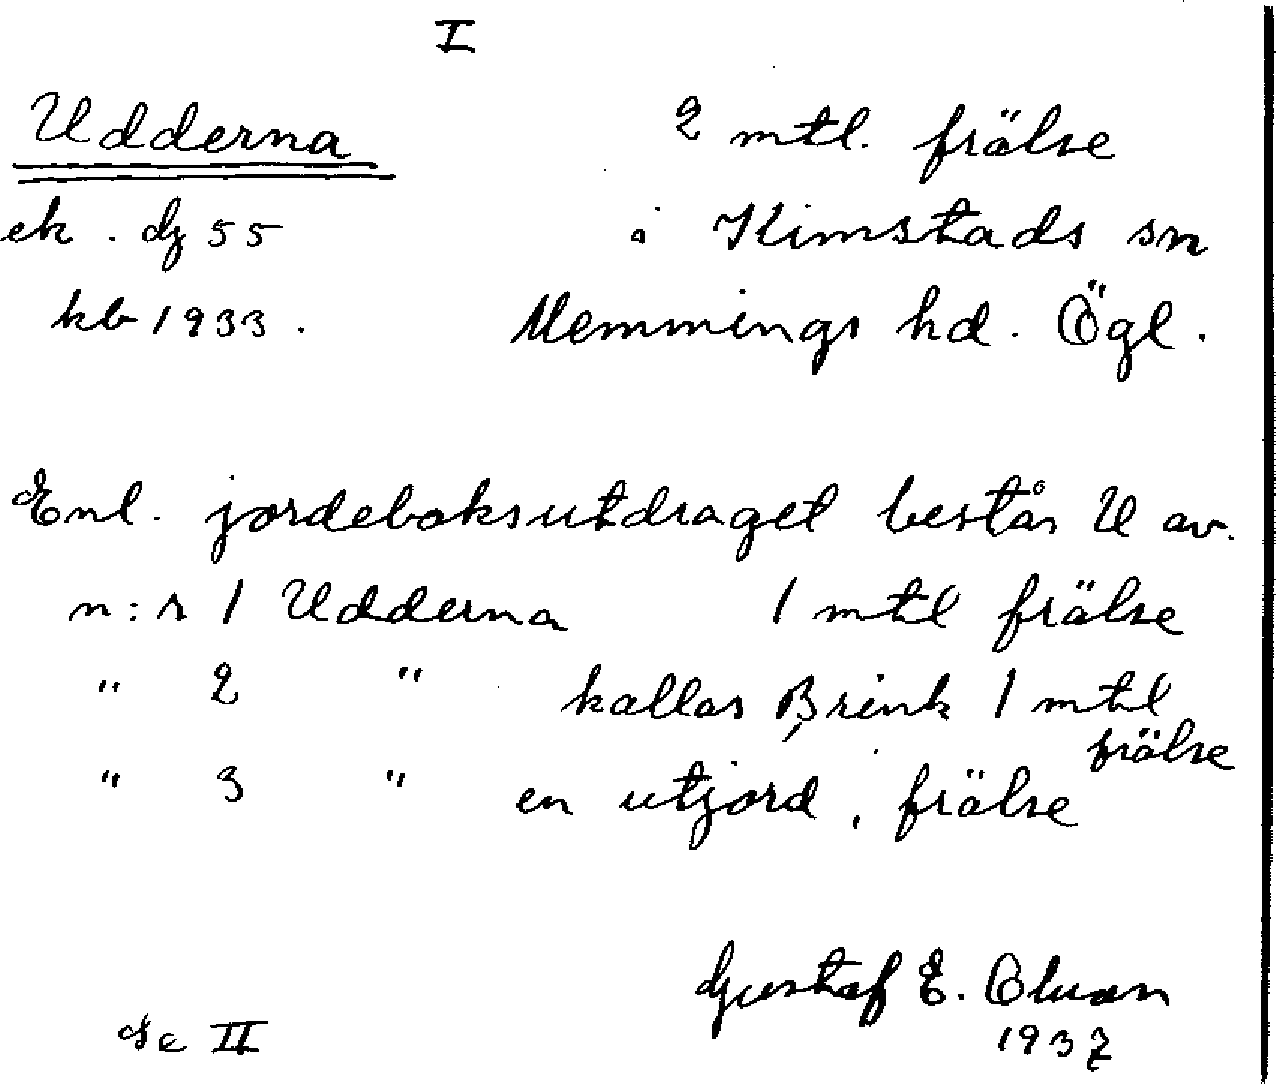 I
Udderna 2 mtl. frälse
ek. dg 55 i Kimstads sn
kb 1933. Memmings hd. Ögl.
Enl. jordeboksutdraget består U av.
n:r 1 Udderna 1 mtl frälse
" 2 " kallas Brink 1 mtl frälse
" 3 " en utjord, frälse
Gustaf E.
1937
Se II